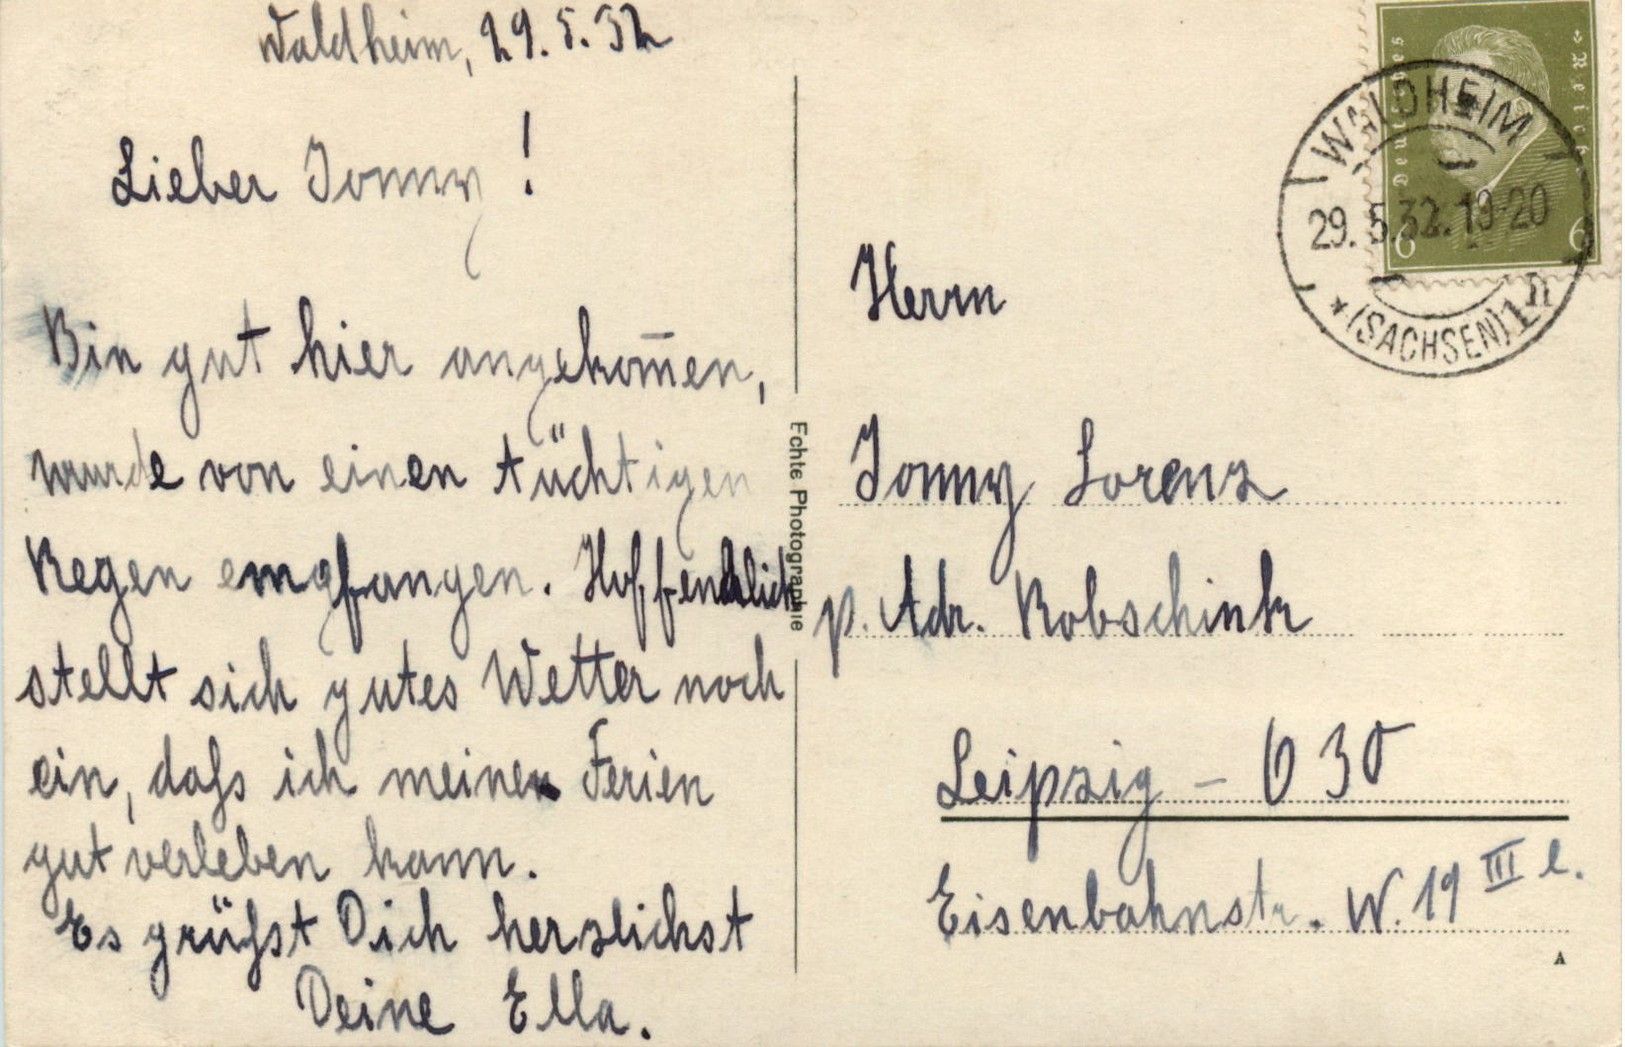 Waldheim, 29.5.32
Lieber Jonny!
Bin gut hier angekom̅en,
wurde von einen tüchtigen
Regen empfangen. Hoffendlich
stellt sich gutes Wetter noch
ein, daſs ich meinen Ferien
gut verleben kann.
Es grüſst Dich herzlichst
Deine Ella.
Echte Photographie
Deutsches Reich
6 6
WALDHEIM
29.5.32.19-20
* (SACHSEN) 1 n
Herrn
Jonny Lorenz
p. Adr. Robschink
Leipzig - O 30
Eisenbahnstr. W. 19 III l.
A